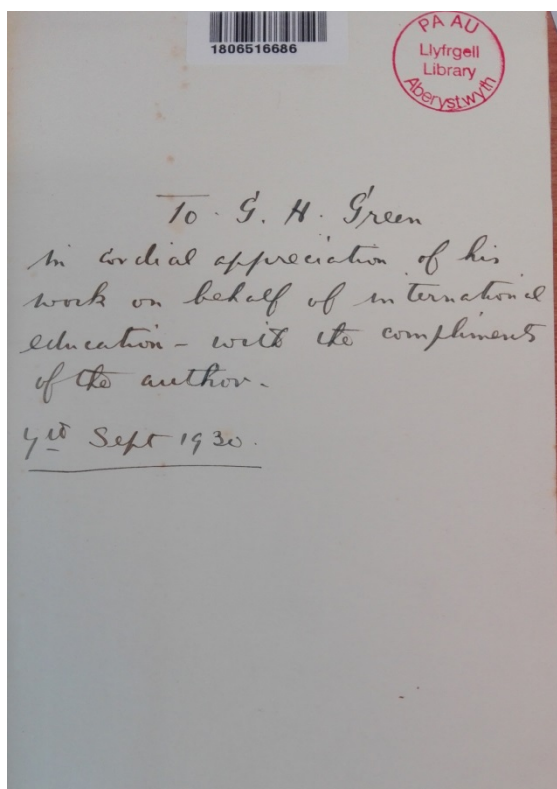 1806516686
PA AU
Llyfrgell
Library
Aberystwyth
To. G. H. Green
in cordial appreciation of his
work on behalf of international
education - with the compliments
of the author.
7th Sept 1930.